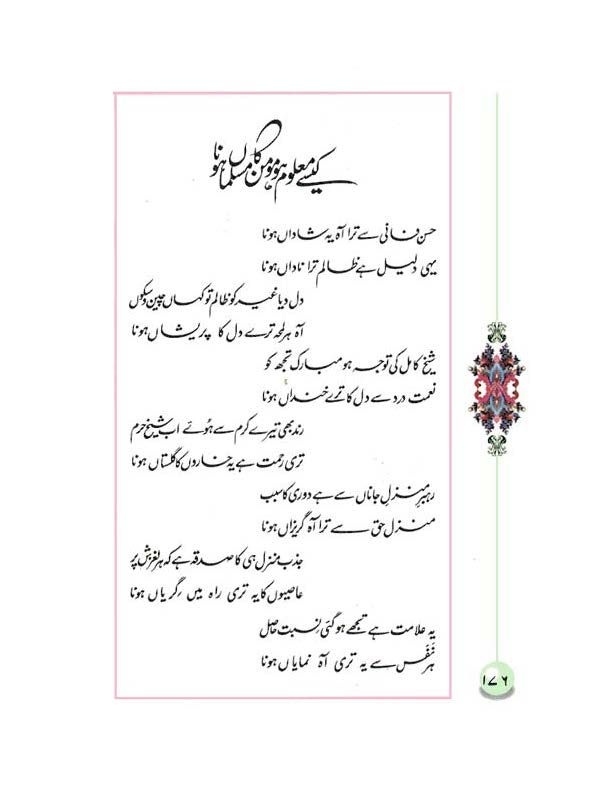 کیسے معلوم ہو مومن کا مسلماں ہونا
حسن فانی سے ترا آہ یہ شاداں ہونا
یہی دلیل ہے ظالم ترا ناداں ہونا
دل دیا غیر کو ظالم تو کہاں چین و سکوں
آہ ہر لمحہ ترے دل کا پریشاں ہونا
شیخ کامل کی توجہ ہو مبارک تجھ کو
نعمت درد سے دل کا ترے خنداں ہونا
رند بھی تیرے کرم سے ہوئے اب شیخ حرم
تری رحمت ہے یہ خاروں کا گلستاں ہونا
رہبرِ منزلِ جاناں سے ہے دوری کا سبب
منزل حق سے ترا آہ گریزاں ہونا
جذب منزل ہی کا صدقہ ہے کہ ہر لغزش پر
عاصیوں کا یہ تری راہ میں گریاں ہونا
یہ علامت ہے تجھے ہوگئی نسبت حاصل
ہر نَفَس سے یہ تری آہ نمایاں ہونا
۱۷۶